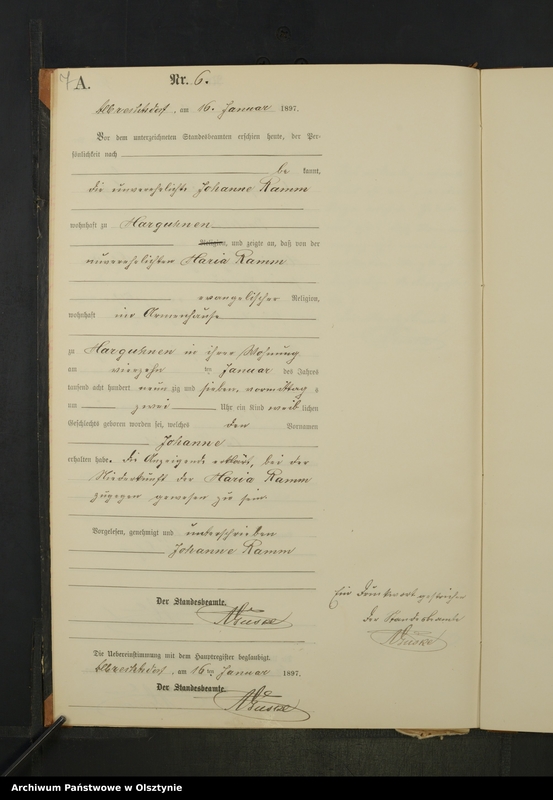 7
A.
Nr. 6.
Albrechtsdorf, am 16. Januar 1897.
Vor dem unterzeichneten Standesbeamten erschien heute, der Per-
sönlichkeit nach
be kannt,
die unverehelichte Johanne Ramm
wohnhaft zu Harguhnen
Religion, und zeigte an, daß von der
unverehelichten Maria Ramm
evangelischer Religion,
wohnhaft im Armenhause
zu Harguhnen in ihrer Wohnung
am vierzehn ten Januar des Jahres
tausend acht hundert neun zig und sieben, vormittags
um zwei Uhr ein Kind weib lichen
Geschlechts geboren worden sei, welches den Vornamen
Johanne
erhalten habe. Die Anzeigende erklärt, bei der
Niederkunft der Maria Ramm
zugegen gewesen zu sein.
Vorgelesen, genehmigt und unterschrieben
Johanne Ramm
Der Standesbeamte.
Ein Druckwort gestrichen
Der Standesbeamte
Die Uebereinstimmung mit dem Hauptregister beglaubigt.
Albrechtsdorf, am 16ten Januar 1897.
Der Standesbeamte.
Archiwum Państwowe w Olsztynie